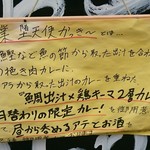 業 堕天使かっきーとは
鰹など魚の節から取った出汁を合わ
挽き肉カレーに、
アラから取った出汁のカレーを重ねた
"鯛出汁×鶏キーマ2層カレ
日替わりの限定カレー!
て、昼から呑めるアテとお酒を